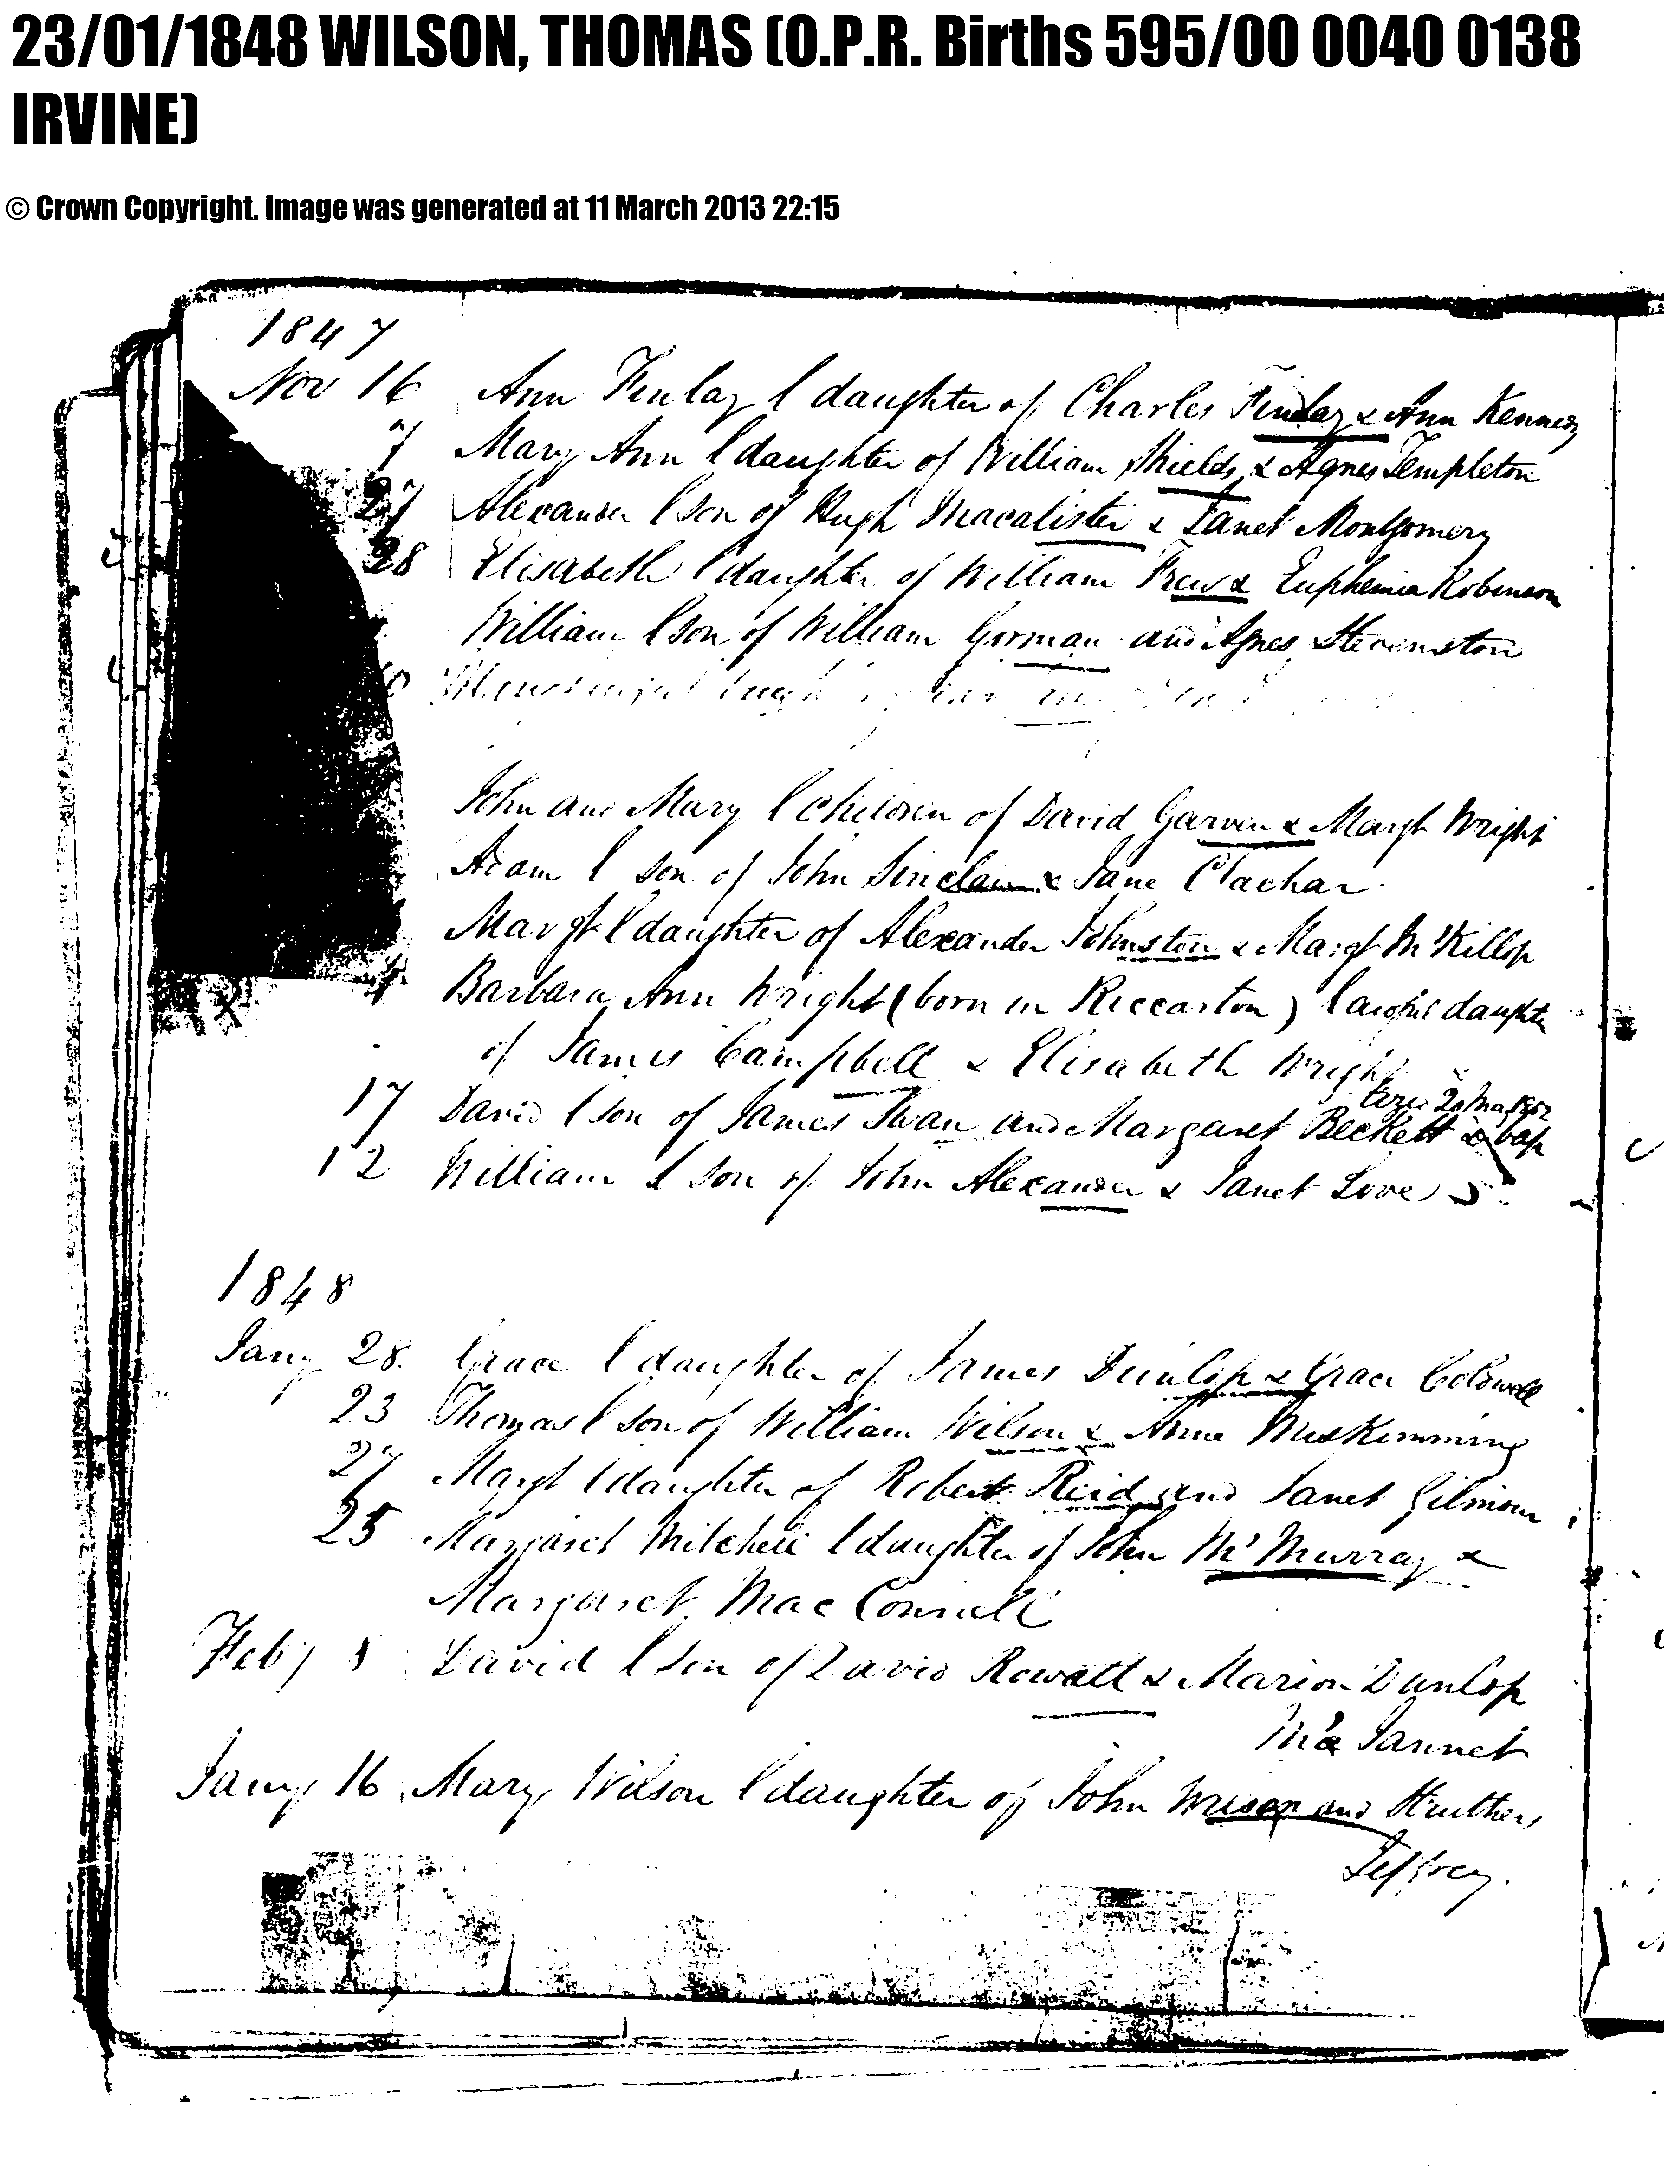 23/01/1848 WILSON, THOMAS (O.P.R. Births 595/00 0040 0138
IRVINE)
© Crown Copyright. Image was generated at 11 March 2013 22:15
1847
Nov 16 Ann Finlay l daughter of Charles Finlay & Ann Kennedy
7 Mary Ann l daughter of William Shields & Agnes Templeton
27 Alexander l son of Hugh Macalister & Janet Montgomery
28 Elisabeth l daughter of William Frew & Euphemia Robinson
William l son of William Gorman and Agnes Stevenston
John and Mary l children of David Garven & Margt Wright
Adam l son of John Sinclair & Jane Clachar
Margt l daughter of Alexander Johnston & Margt McKillop
4 Barbara Ann Wright (born in Riccarton) lawful daughter
of James Campbell & Elisabeth Wright
17 David l son of James Swan and Margaret Beckett & bap
12 William l son of John Alexander & Janet Love
1848
Jany 28. Grace l daughter of James Dunlop & Grace Coldwell
23 Thomas l son of William Wilson & Anne McSkimming
27 Margt l daughter of Robert Reid and Janet Gilmour
25 Margaret Mitchell l daughter of John McMurray &
Margaret MacConnell
Feby 8 David l son of David Rowatt & Marion Dunlop
Jannet
Jany 16 Mary Wilson l daughter of John and Struthers
Jeffrey.